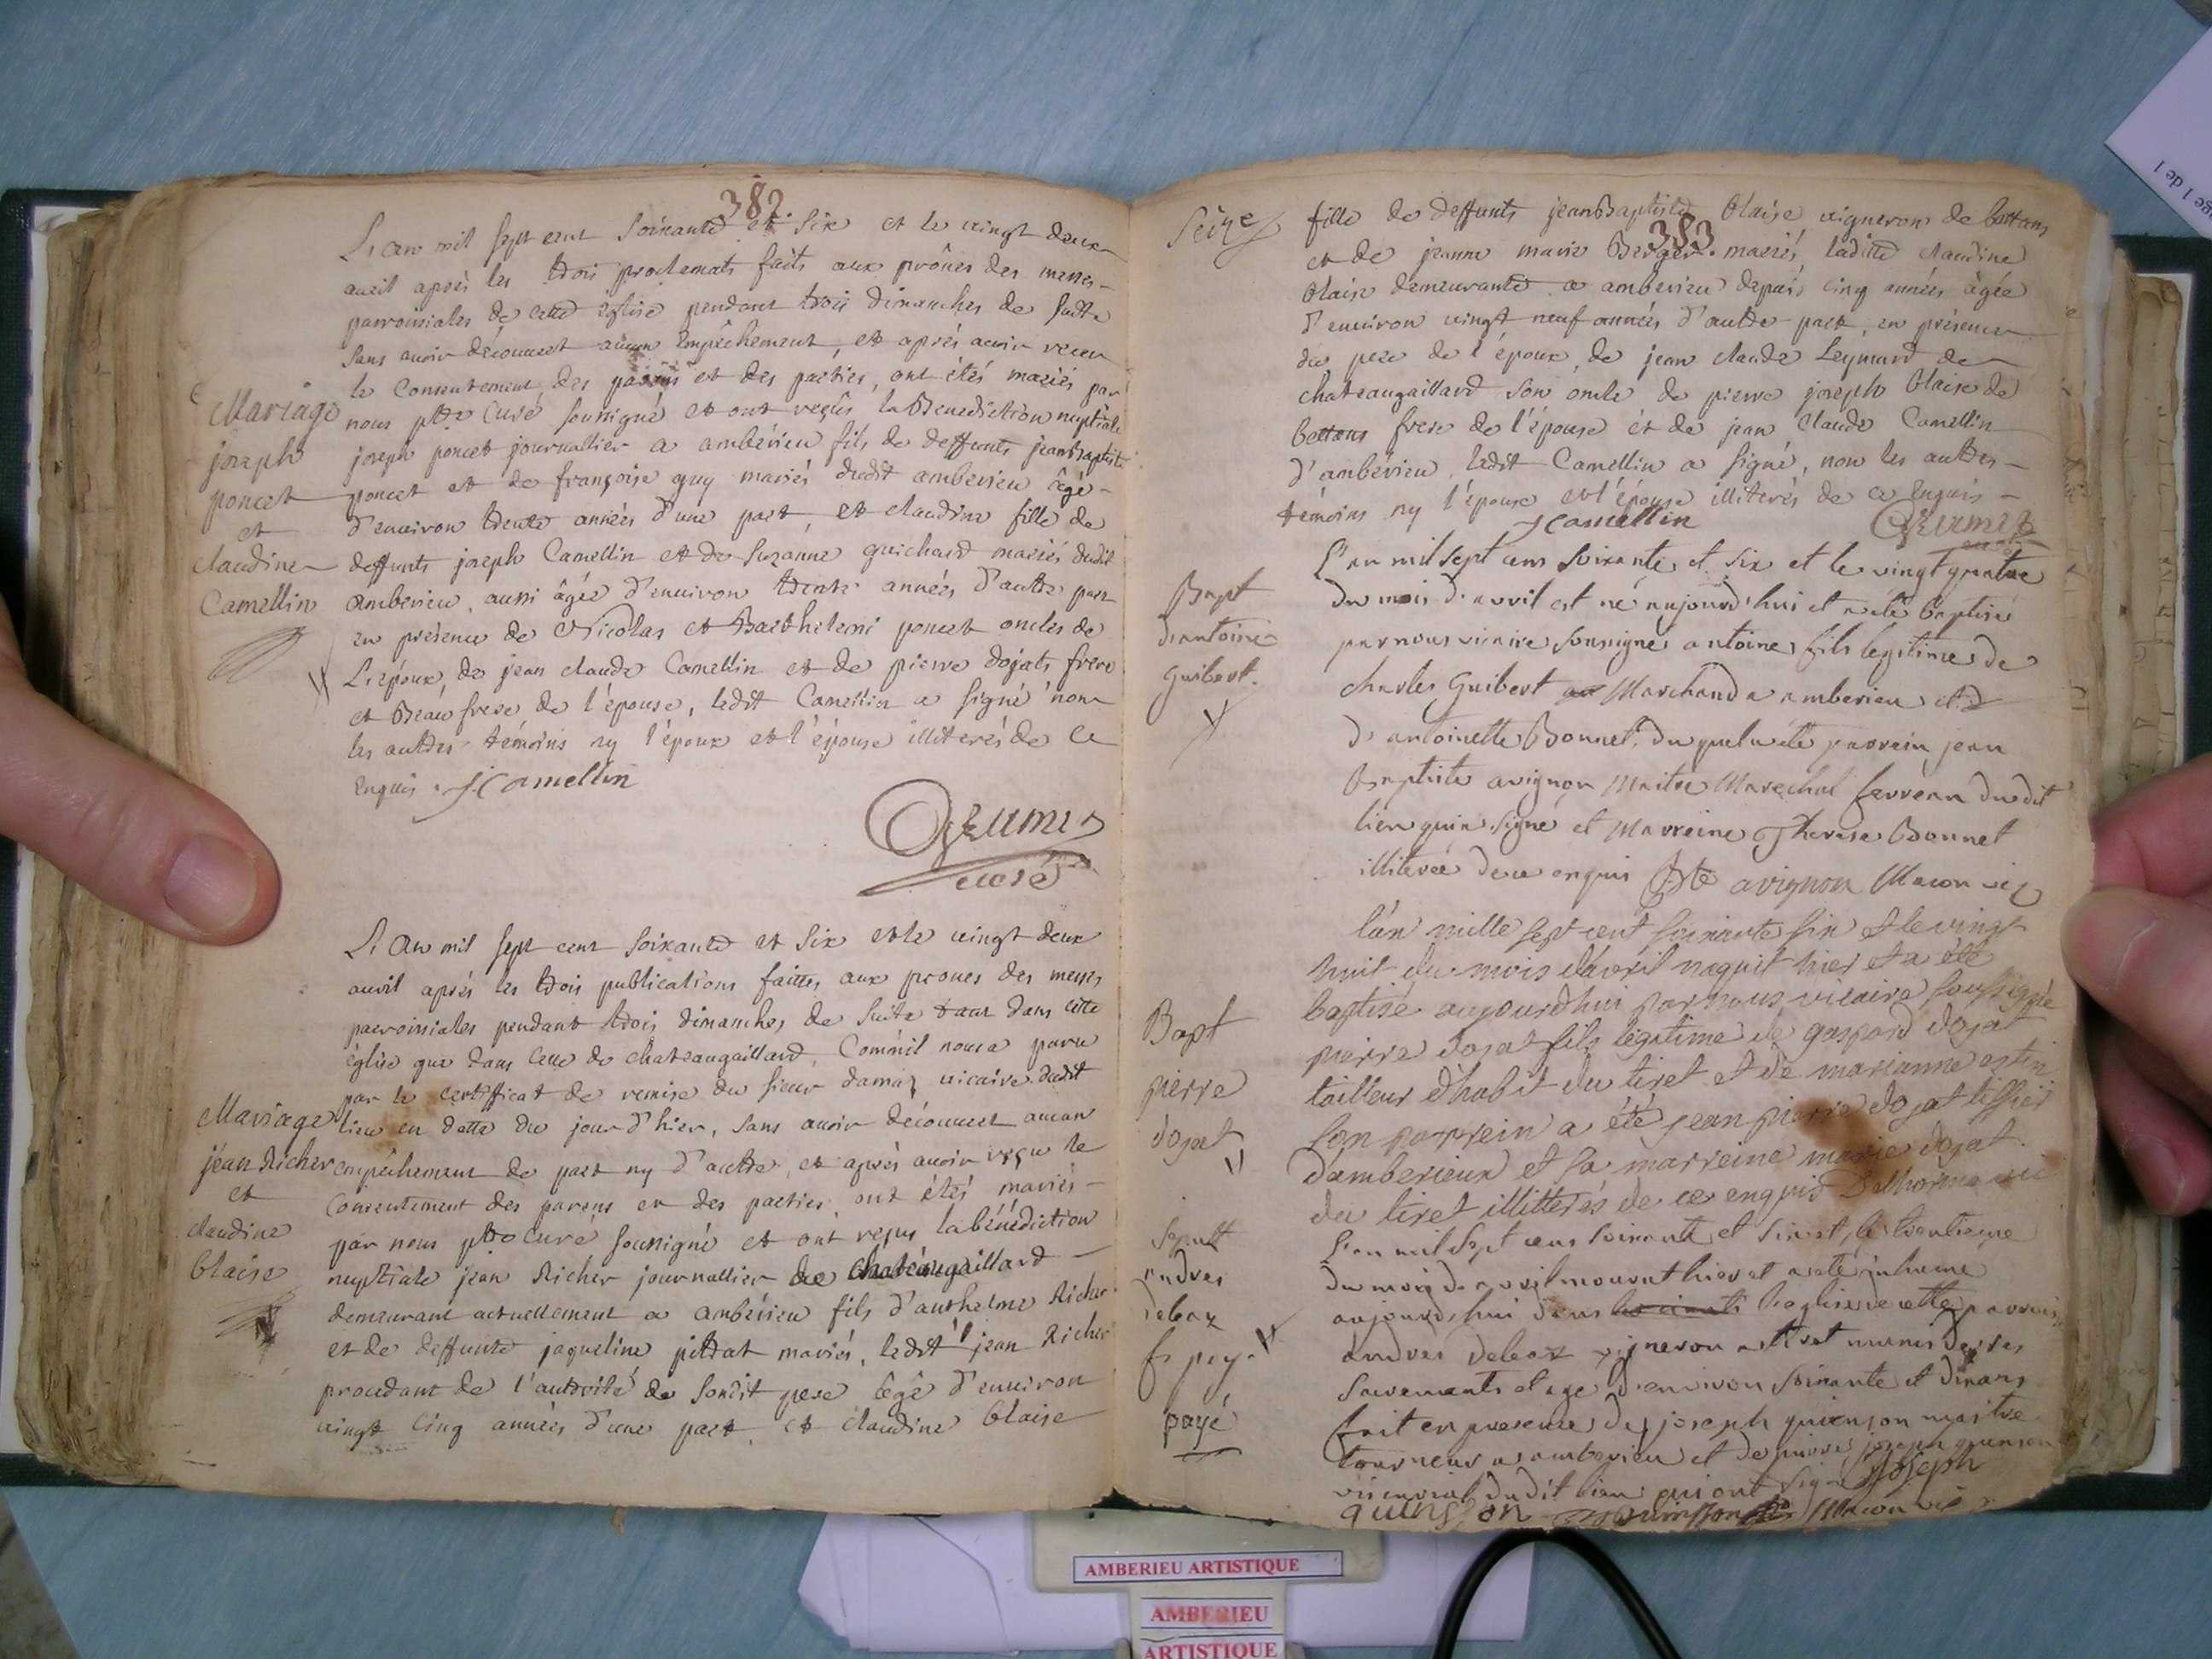 382
L'an mil sept cent soixante et six et le vingt deux
avril après les trois proclamats faits aux prônes des messes
parroissiales de cette église pendant trois dimanches de suitte
sans avoir découvert aucun empêchement, et après avoir recu
le consentement des parens et des parties, ont étés mariés par
Mariage
nous ptre curé soussigné et ont reçus la Benediction nuptiale
joseph
joseph poncet journallier a ambérieu fils de deffunts jean Baptiste
poncet
poncet et de françoise guy mariés dudit amberieu âgé
et
d'environ trente années d'une part, et claudine fille de
claudine
deffunts joseph Camellin et de Suzanne guichard mariés dudit
Camellin
amberieu, aussi âgée d'environ trente années d'autre part
en présence de Nicolas et Barthelemi poncet oncles de
L'époux, de jean claude Camellin et de pierre dojats frere
et Beau frere de l'épouse, ledit Camellin a signé non
les autres témoins ny l'époux et l'épouse illiterés de ce
enquis. J Camellin
curé
L'an mil sept cent soixante et six et le vingt deux
avril après les trois publications faittes aux prones des messes
parroissiales pendant trois dimanches de suite tant dans cette
église que dans celle de chateaugaillard, comm'il nous a paru
par le certifficat de remise du sieur damaz vicaire dudit
Mariage
lieu en datte du jour d'hier, sans avoir découvert aucun
jean Richer
empêchement de part ny d'autre, et après avoir reçu le
et
consentement des parens et des parties, ont étés mariés
claudine
par nous ptre curé soussigné et ont reçus la bénédiction
blaise
nuptiale jean Richer journallier de chateaugaillard
demeurant actuellement a ambérieu fils d'anthelme Richer
et de deffunte jaqueline pittrat mariés, ledit jean Richer
procedant de l'autorité de sondit pere âgé d'environ
vingt cinq années d'une part, et claudine blaise
Seize
383
fille de deffunts jean Baptiste blaise vigneron de bettans
et de jeanne marie Berger mariés, laditte claudine
blaise demeurante a amberieu depuis cinq années âgée
d'environ vingt neuf années d'autre part, en présence
du pere de l'époux, de jean claude Leymard de
chateaugaillard son oncle de pierre joseph blaise de
bettans frere de l'épouse et de jean claude Camellin
d'ambérieu, ledit Camellin a signé, non les autres
témoins ny l'époux et l'épouse illiterés de ce enquis
J Camellin
curé
L'an mil sept cens soixante et six et le vingt quatre
Bapt
du mois d'avril est né aujourd'hui et a été baptisé
d'antoine
par nous vicaire soussigné antoine fils legitime de
guibert.
charles Guibert Marchand a amberieu et
d'antoinette Bonnet, duquel a été parrein jean
Baptiste avignon Maitre Marechal ferrean dudit
lieu qui a signé et Marreine Therese Bonnet
illiterée de ce enquis Bte avignon Macon vic
l'an mille sept cent soixante six et le vingt
huit du mois d'avril naquit hier et a été
baptisé aujourd'hui par nous vicaire soussigné
Bapt
pierre dojat fils légitime de gaspard dojat
pierre
tailleur d'habit du tiret et de marianne
dojat
son parrein a été jean pierre dojat tissier
d'amberieux et sa marreine marie dojat
du tiret illitterés de ce enquis Delhorme vic
Sepult
L'an mil sept cens soixante et six et le trentieme
andrée
du mois d'avril mourut hier et a eté inhumé
debeaz
aujourd'hui dans l'eglise de cette parroisse
andrée debeaz vigneron a tiret munis de ses
sacremants et agé d'environ soixante et dix ans
payé
fait en presence de joseph quinson maitre
tourneur a amberieu et de pierre joseph quinson
dudit lieu qui ont signé Joseph
quinsson Macon vic
AMBERIEU ARTISTIQUE
AMBERIEU
ARTISTIQUE